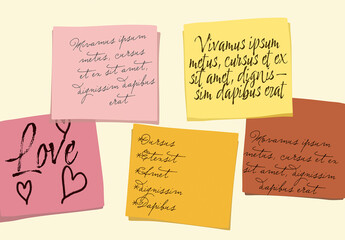 Vivamus ipsum
metus, cursus
et ex sit amet,
dignissim dapibus
erat
Vivamus ipsum
metus, cursys et ex
sit amet, dignis—
sim dapibus erat
Love
Cursus
Etexsit
Amet
dignissim
Dapibus
Vivamus ipsum
metus, cursus et ex
sit amet,
dignissim dapibus
erat